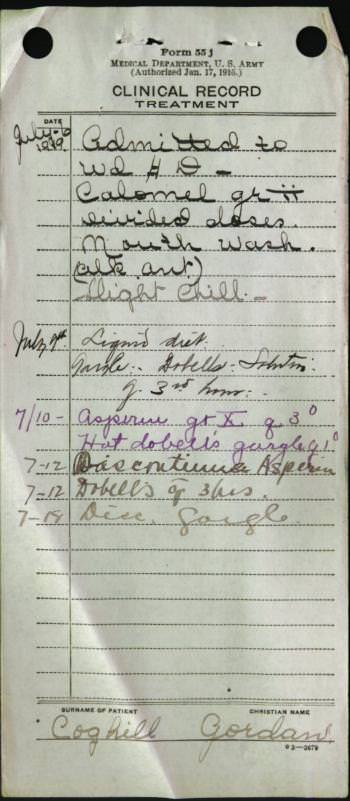 Form 55 j
MEDICAL DEPARTMENT, U. S. ARMY
(Authorized Jan. 17, 1916.)
CLINICAL RECORD
TREATMENT
DATE
July-6 Admitted to
1919 Wd H D -
Calomel gr ii
divided doses.
Mouth wash.
(alk ant)
Slight Chill. -
July 9th Liquid diet
Gargle - Dobells - Solution
q. 3rd hour.
7/10 - Asperin gr X q 3°
Hot dobell's gargle q 1°
7-12 Discontinue Asperin
7-12 Dobell's q 3 hrs.
7-18 Disc. Gargle
SURNAME OF PATIENT CHRISTIAN NAME
Coghill Gordan
3-2679